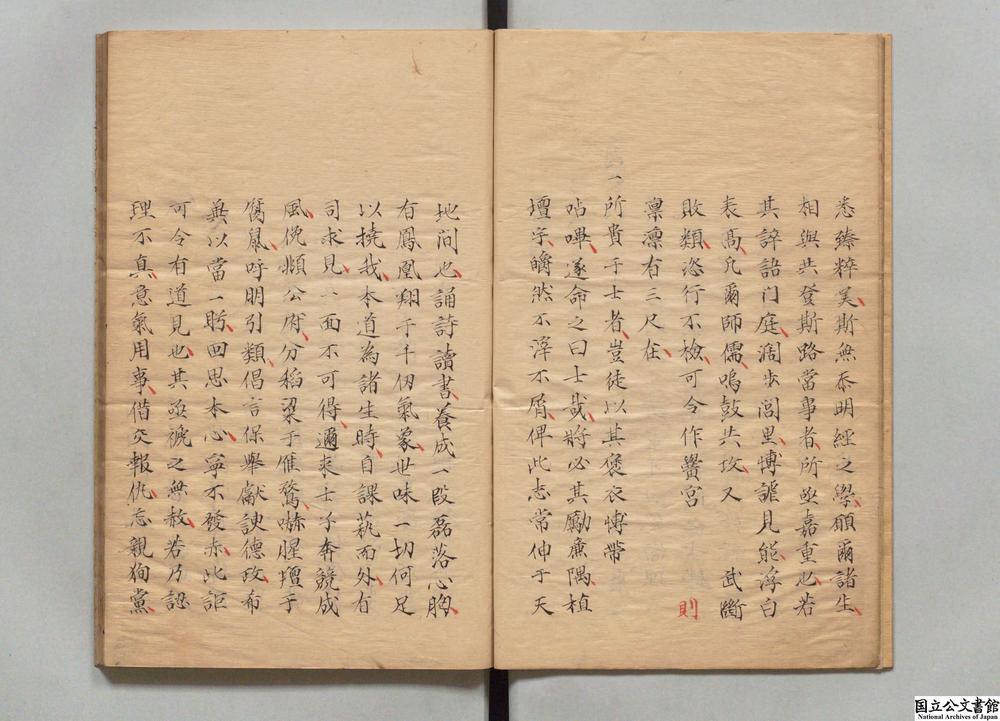 悉臻粹美斯無忝明經之學願爾諸生
相與共登斯路當事者所亟嘉重也若
其誶語門庭濶步閭里愽謔見能浮白
表高凡爾師儒鳴鼓共攻又 武斷
敗類恣行不檢可令作黌宮 則
凛凛有三尺在
一所貴于士者豈徒以其褒衣愽帶
呫嗶遂命之曰士哉將必其勵廉隅植
壇宇皭然不滓不屑俾此志常伸于天
地间也誦詩讀書養成一段磊落心胸
有鳳凰翔于千仞氣象世味一切何足
以撓我本道為諸生時自課蓺而外有
司求見一面不可得邇来士子奔競成
風俛頫公府分稻粱于雁鶩嚇腥羶于
腐䑕呼明引類倡言保舉獻諛德政希
異以當一盻回思本心寧不發赤此詎
可令有道見也其亟褫之無赦若乃認
理不真意氣用事借交報仇忘親狥黨
国立公文書館
National Archives of Japan